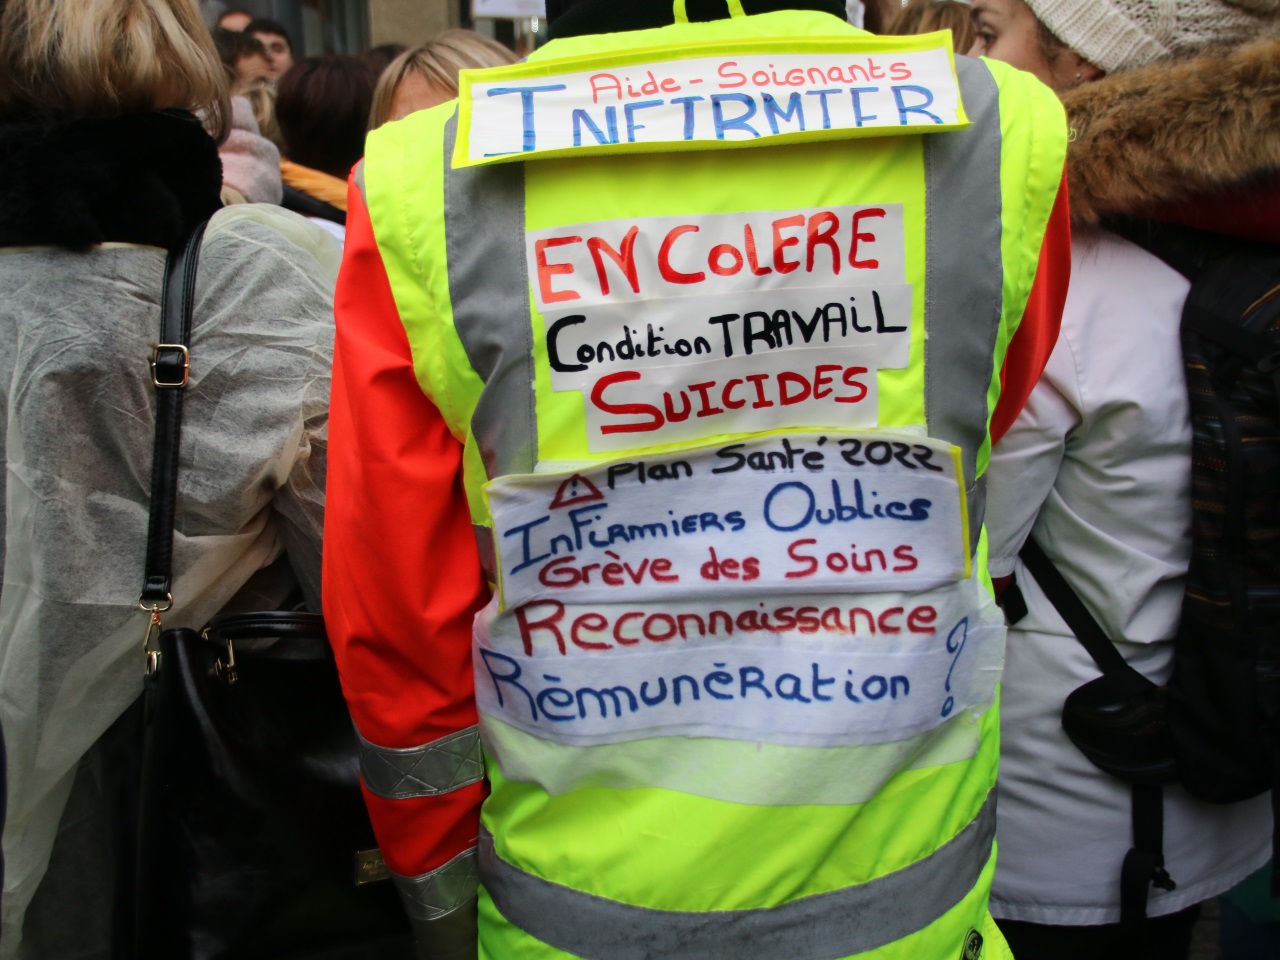 Aide-Soignants
INFIRMIER
EN COLERE
Condition TRAVAIL
SUICIDES
Plan Santé 2022
InFirmiers Oublies
Grève des Soins
Reconnaissance
Rèmunération ?